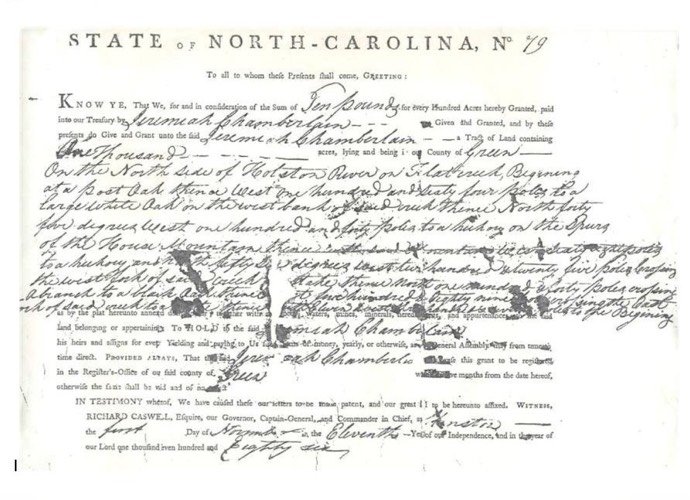 STATE OF NORTH-CAROLINA, No. 79
To all to whom these Presents shall come, GREETING:
KNOW YE, That We, for and in consideration of the Sum of Ten pounds for every Hundred Acres hereby Granted, paid
into our Treasury by Jeremiah Chamberlain Given and Granted, and by these
presents do Give and Grant unto the said Jeremiah Chamberlain a Tract of Land containing
One Thousand acres, lying and being in our County of Green
On the North side of Holston River on Flat creek, Begining
at a Post Oak thence West one hundred and sixty four poles to a
large white Oak on the west bank of said creek thence North forty
five degrees West one hundred and forty Poles to a hickory on the Spurs
of the House Mountain thence
to a hickory and degrees West two hundred & twenty five Poles crosping
the west fork of said creek stake, thence North one hundred & forty Poles crosping
a branch to a black Oak thence one hundred & eighty nine
of said creek to the Begining
as by the plat hereunto annexed waters, mines, minerals, and appurtenances to the said
land belonging or appertaining: To HOLD to the said Jeremiah Chamberlain
his heirs and assigns for ever. Yielding and paying to Us of money, yearly, or otherwise, as General Assembly may from time to
time direct. PROVIDED ALWAYS, That the said Jeremiah Chamberlain cause this grant to be registered
in the Register's-Office of our said county of Green within twelve months from the date hereof,
otherwise the same shall be void and of no effect
IN TESTIMONY whereof, We have caused these our letters to be made patent, and our great to be hereunto affixed. WITNESS,
RICHARD CASWELL, Esquire, our Governor, Captain-General, and Commander in Chief, at Kinston
the first Day of Novemb in the Eleventh Year of our Independence, and in the year of
our Lord one thousand seven hundred and Eighty six